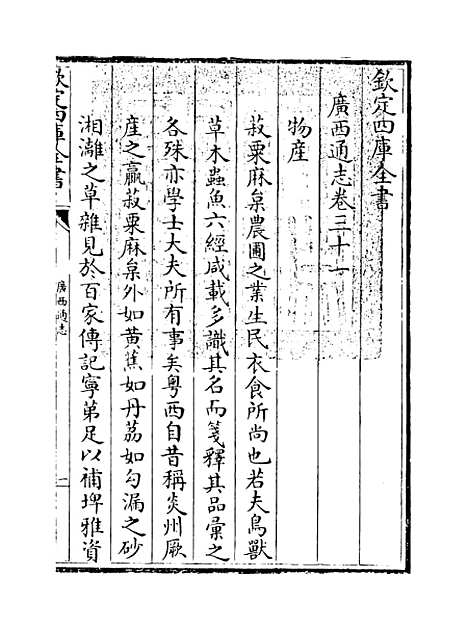 欽定四庫全書
廣西通志卷三十一
物產
菽粟麻枲農圃之業生民衣食所尚也若夫鳥獸
草木蟲魚六經咸載多識其名而箋釋其品彙之
各殊亦學士大夫所有事矣粤西自昔稱炎州厥
產之贏菽粟麻枲外如黃蕉如丹荔如勾漏之砂
湘灕之草雜見於百家傳記寧第足以補埤雅資
欽定四庫全書
廣西通志
一